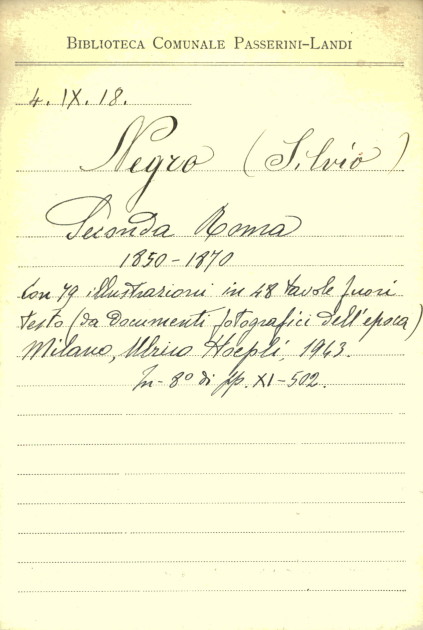 BIBLIOTECA COMUNALE PASSERINI-LANDI
4. IX. 18.
Negro (Silvio)
Seconda Roma
1850-1870
Con 79 illustrazioni in 48 tavole fuori
testo (da Documenti fotografici dell'epoca)
Milano, Ulrico Hoepli, 1943.
In-8° di pp. XI-502.